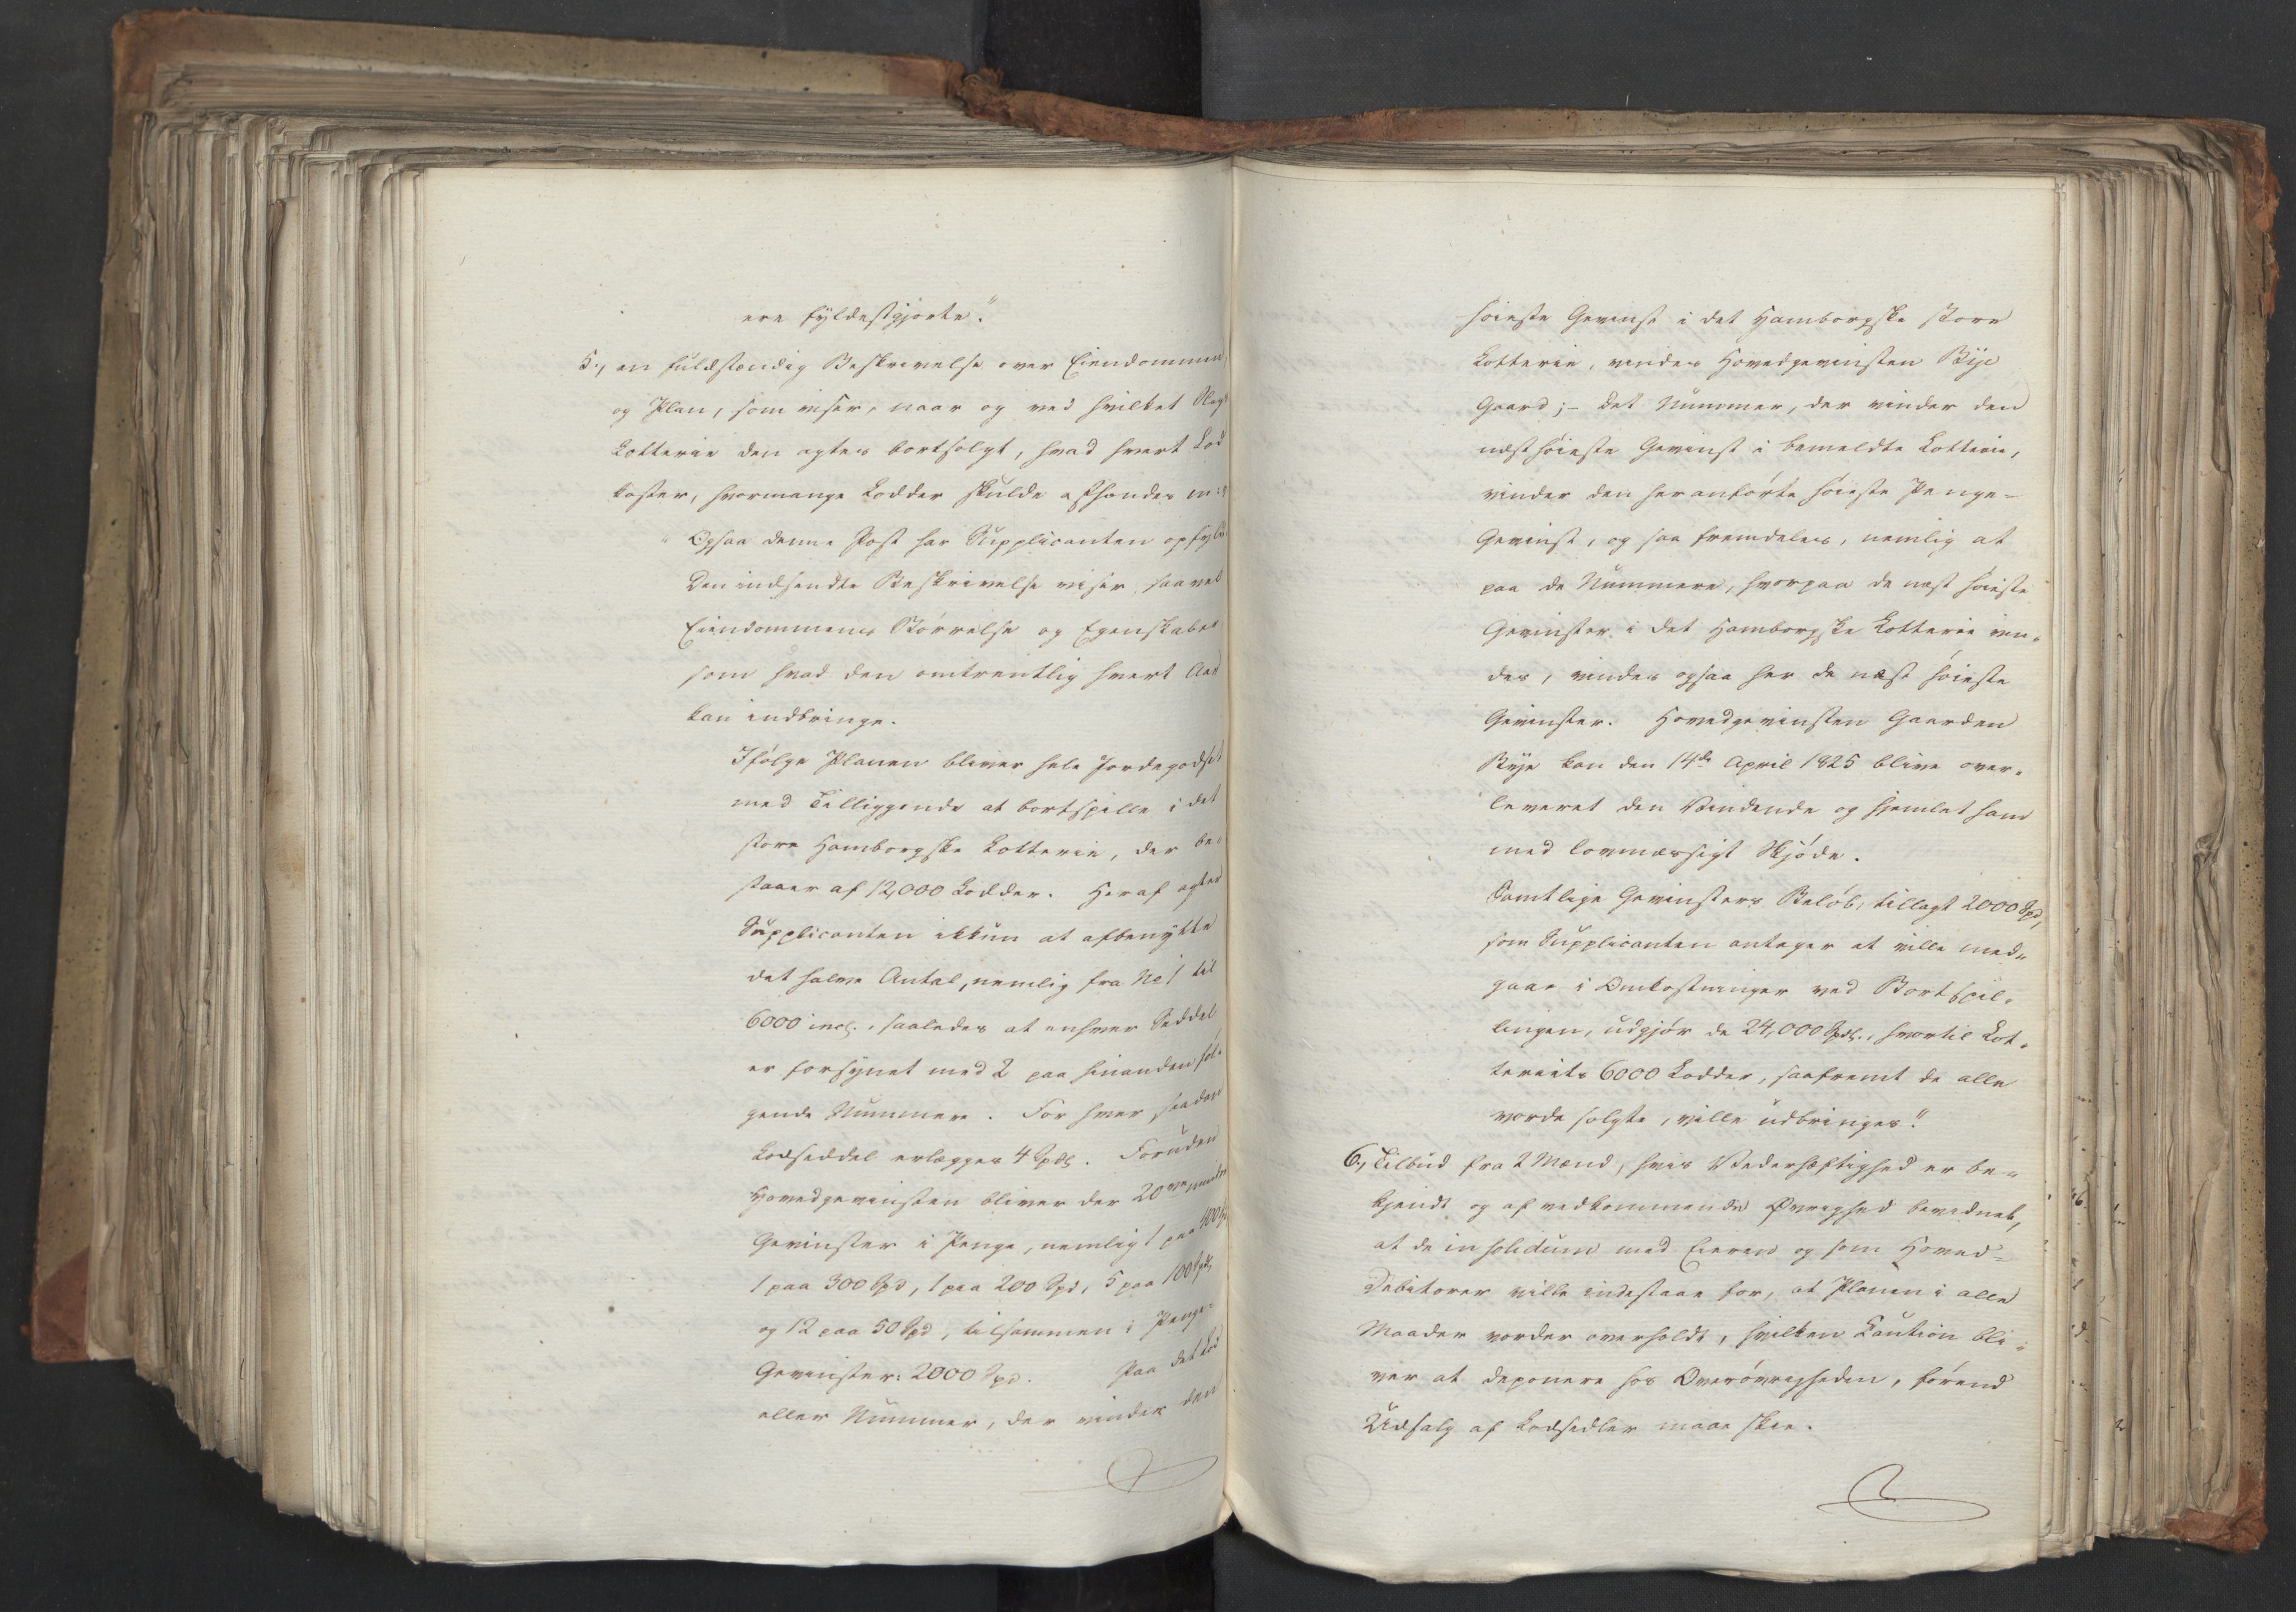 ere fyldestgjorte."
5., en fuldstændig Beskrivelse over Eiendommen,
og Plan, som viser, naar og ved hvilket Slags
Lotterie den agtes bortsolgt, hvad hvert Lod
koster, hvormange Lodder skulde afhændes m:
" Ogsaa denne Post har Supplicanten opfyldt
Den indsendte Beskrivelse viser saavel
Eiendommens Størrelse og Egenskaber
som hvad den omtrentlig hvert Aar
kan indbringe.
Ifølge Planen bliver hele Jordegodset
med Tilliggende at bortspille i det
store Hamborgske Lotterie, der be-
staaer af 12,000 Lodder. Heraf agter
Supplicanten ikkun at afbenytte
det halve Antal, nemlig fra No 1 til
6000 incl., saaledes at enhver Seddel
er forsynet med 2 paa hinanden føl-
gende Nummere. For hver saadan
Lodseddel erlægges 4 Spdl. Foruden
Hovedgevinsten bliver der 20
Gevinster i Penge, nemlig 1 paa 400
1 paa 300 Spd, 1 paa 200 Spd, 5 paa 100 Spdl,
og 12 paa 50 Spd, tilsammen i Penge-
Gevinster: 2000 Spd. Paa det Lod
eller Nummer, der vinder den
høieste Gevinst i det Hamborgske store
Lotterie, vindes Hovedgevinsten Rye
Gaard; - det Nummer, der vinder den
næsthøieste Gevinst i bemeldte Lotterie,
vinder den her anførte høieste Penge-
Gevinst, og saa fremdeles, nemlig at
paa de Nummere, hvorpaa de næst høieste
Gevinster i det Hamborgske Lotterie vin-
des, vindes ogsaa her de næst høieste
Gevinster. Hovedgevinsten Gaarden
Rye kan den 14de April 1825 blive over-
leveret den Vindende og hjemlet ham
med lovmæssigt Skjøde.
Samtlige Gevinsters Beløb, tillagt 2000 Spd,
som Supplicanten antager at ville med-
gaae i Omkostninger ved Bortspil-
lingen, udgjør de 24,000 Spdl., hvortil Lot-
teriets 6000 Lodder, saafremt de alle
vorde solgte, ville udbringes."
6., Tilbud fra 2 Mænd, hvis Vederhæftighed er be-
kjendt og af vedkommende Øvrighed bevidnet,
at de in solidum med Eieren og som Hoved-
Debitorer ville indestaae for, at Planen i alle
Maader vorder overholdt, hvilken Caution bli-
ver at deponere hos Overøvrigheden, førend
Udsalg af Lodsedler maae skee.